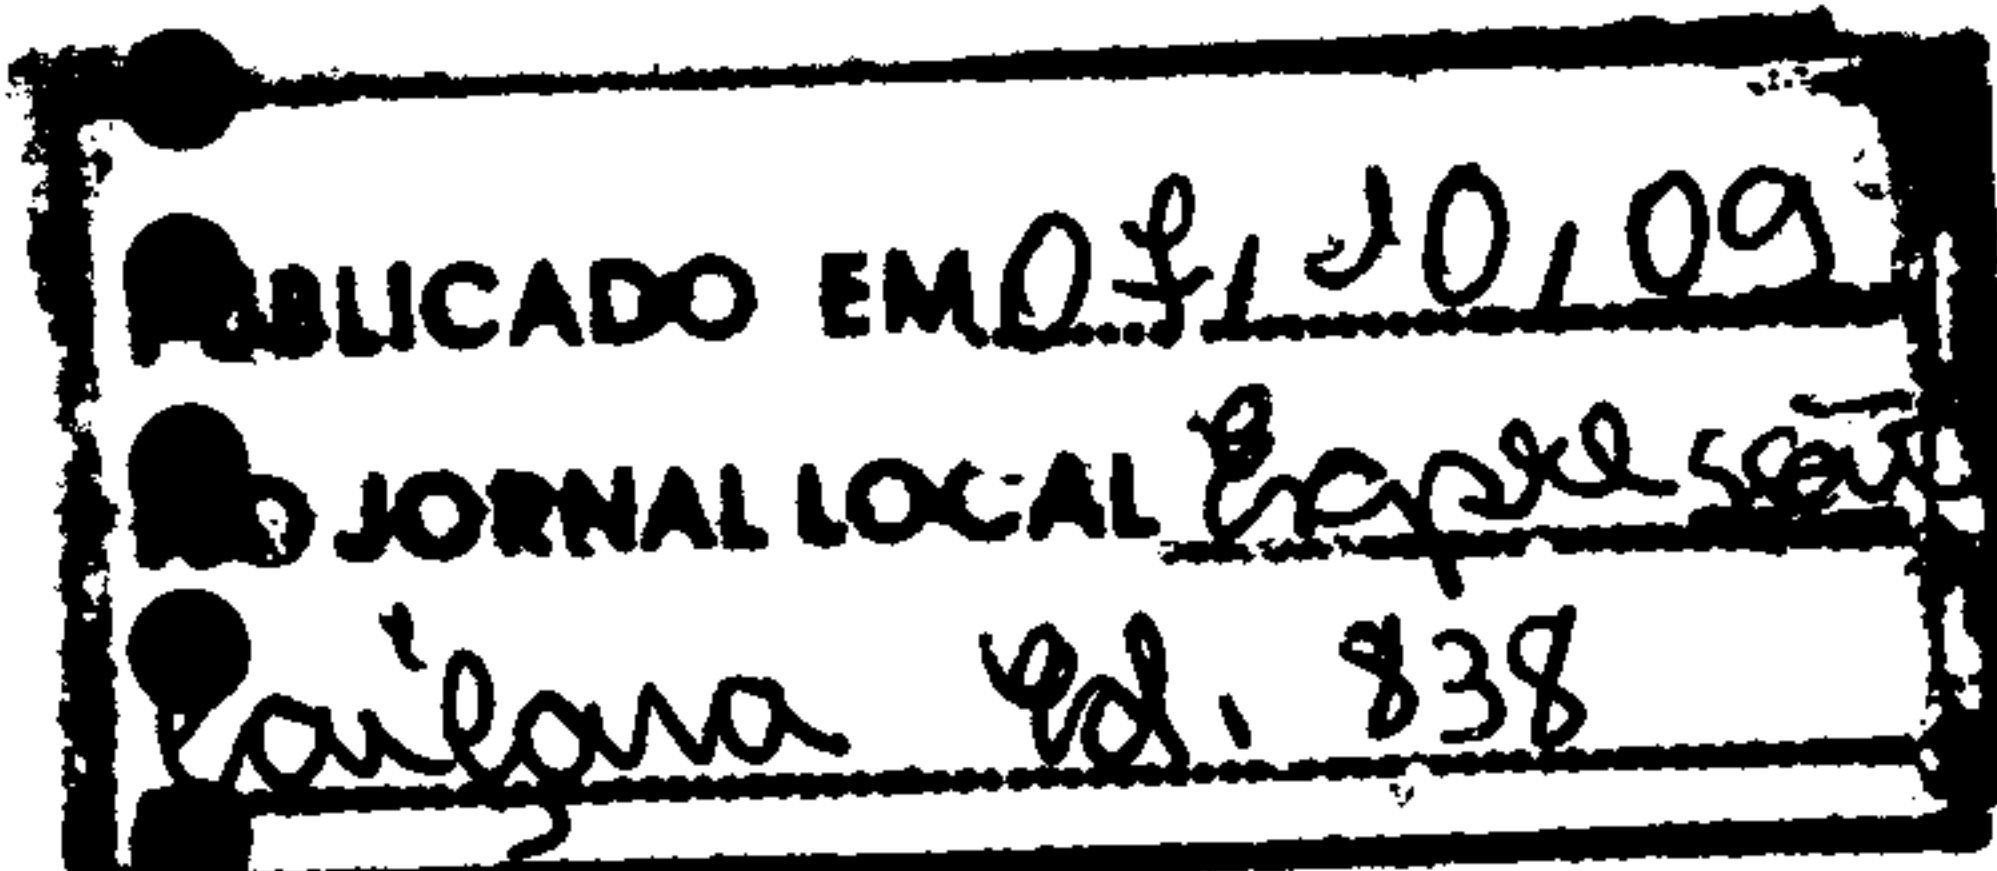 PUBLICADO EM 07/10/09
NO JORNAL LOCAL Expressão
Caiçara Ed. 838